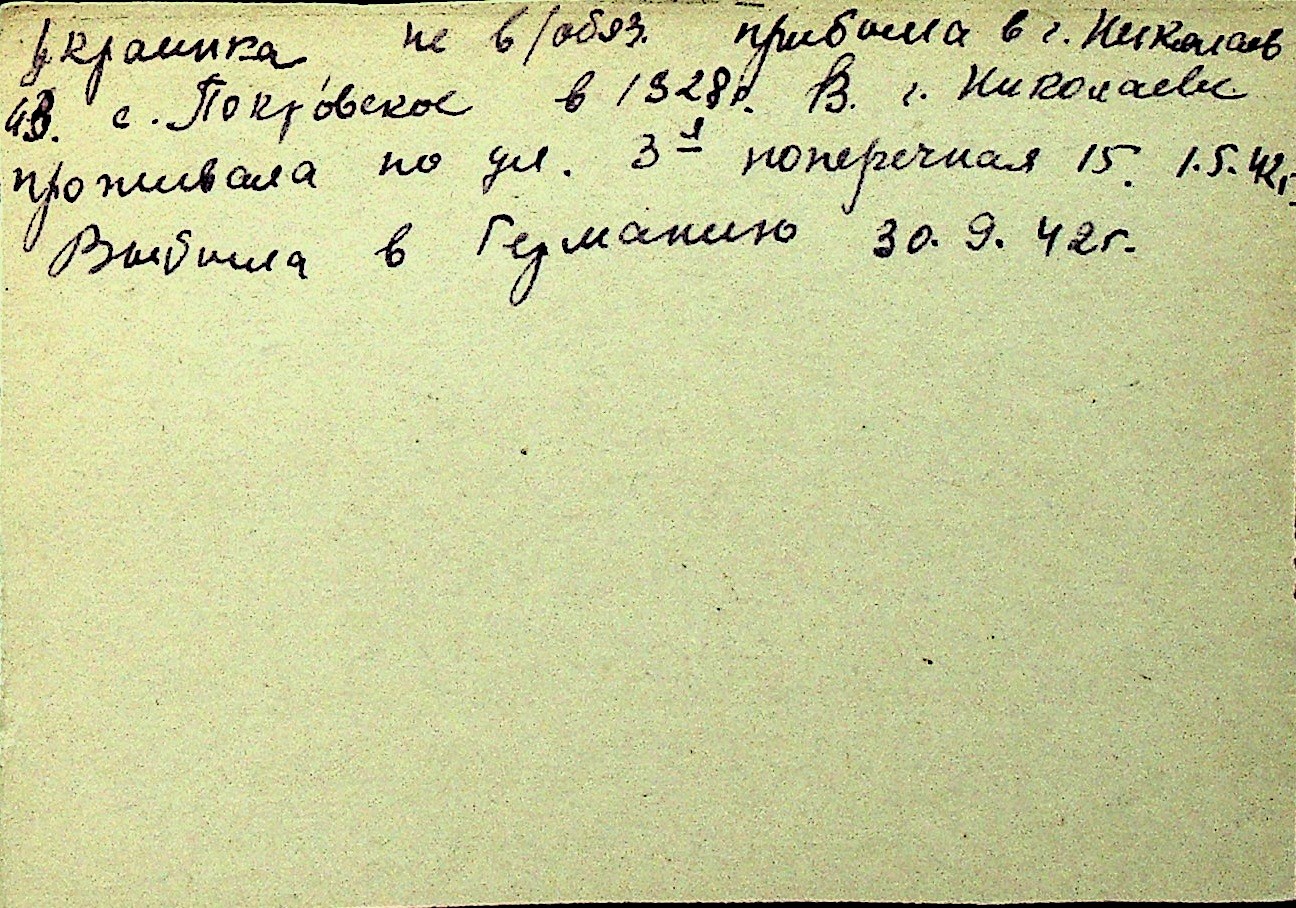 Украинка не в/обяз. прибыла в г. Николаев
из. с. Покровское в 1928г. В. г. Николаеве
проживала по ул. 3-я поперечная 15. 1.5.42г.
Выбыла в Германию 30.9.42г.